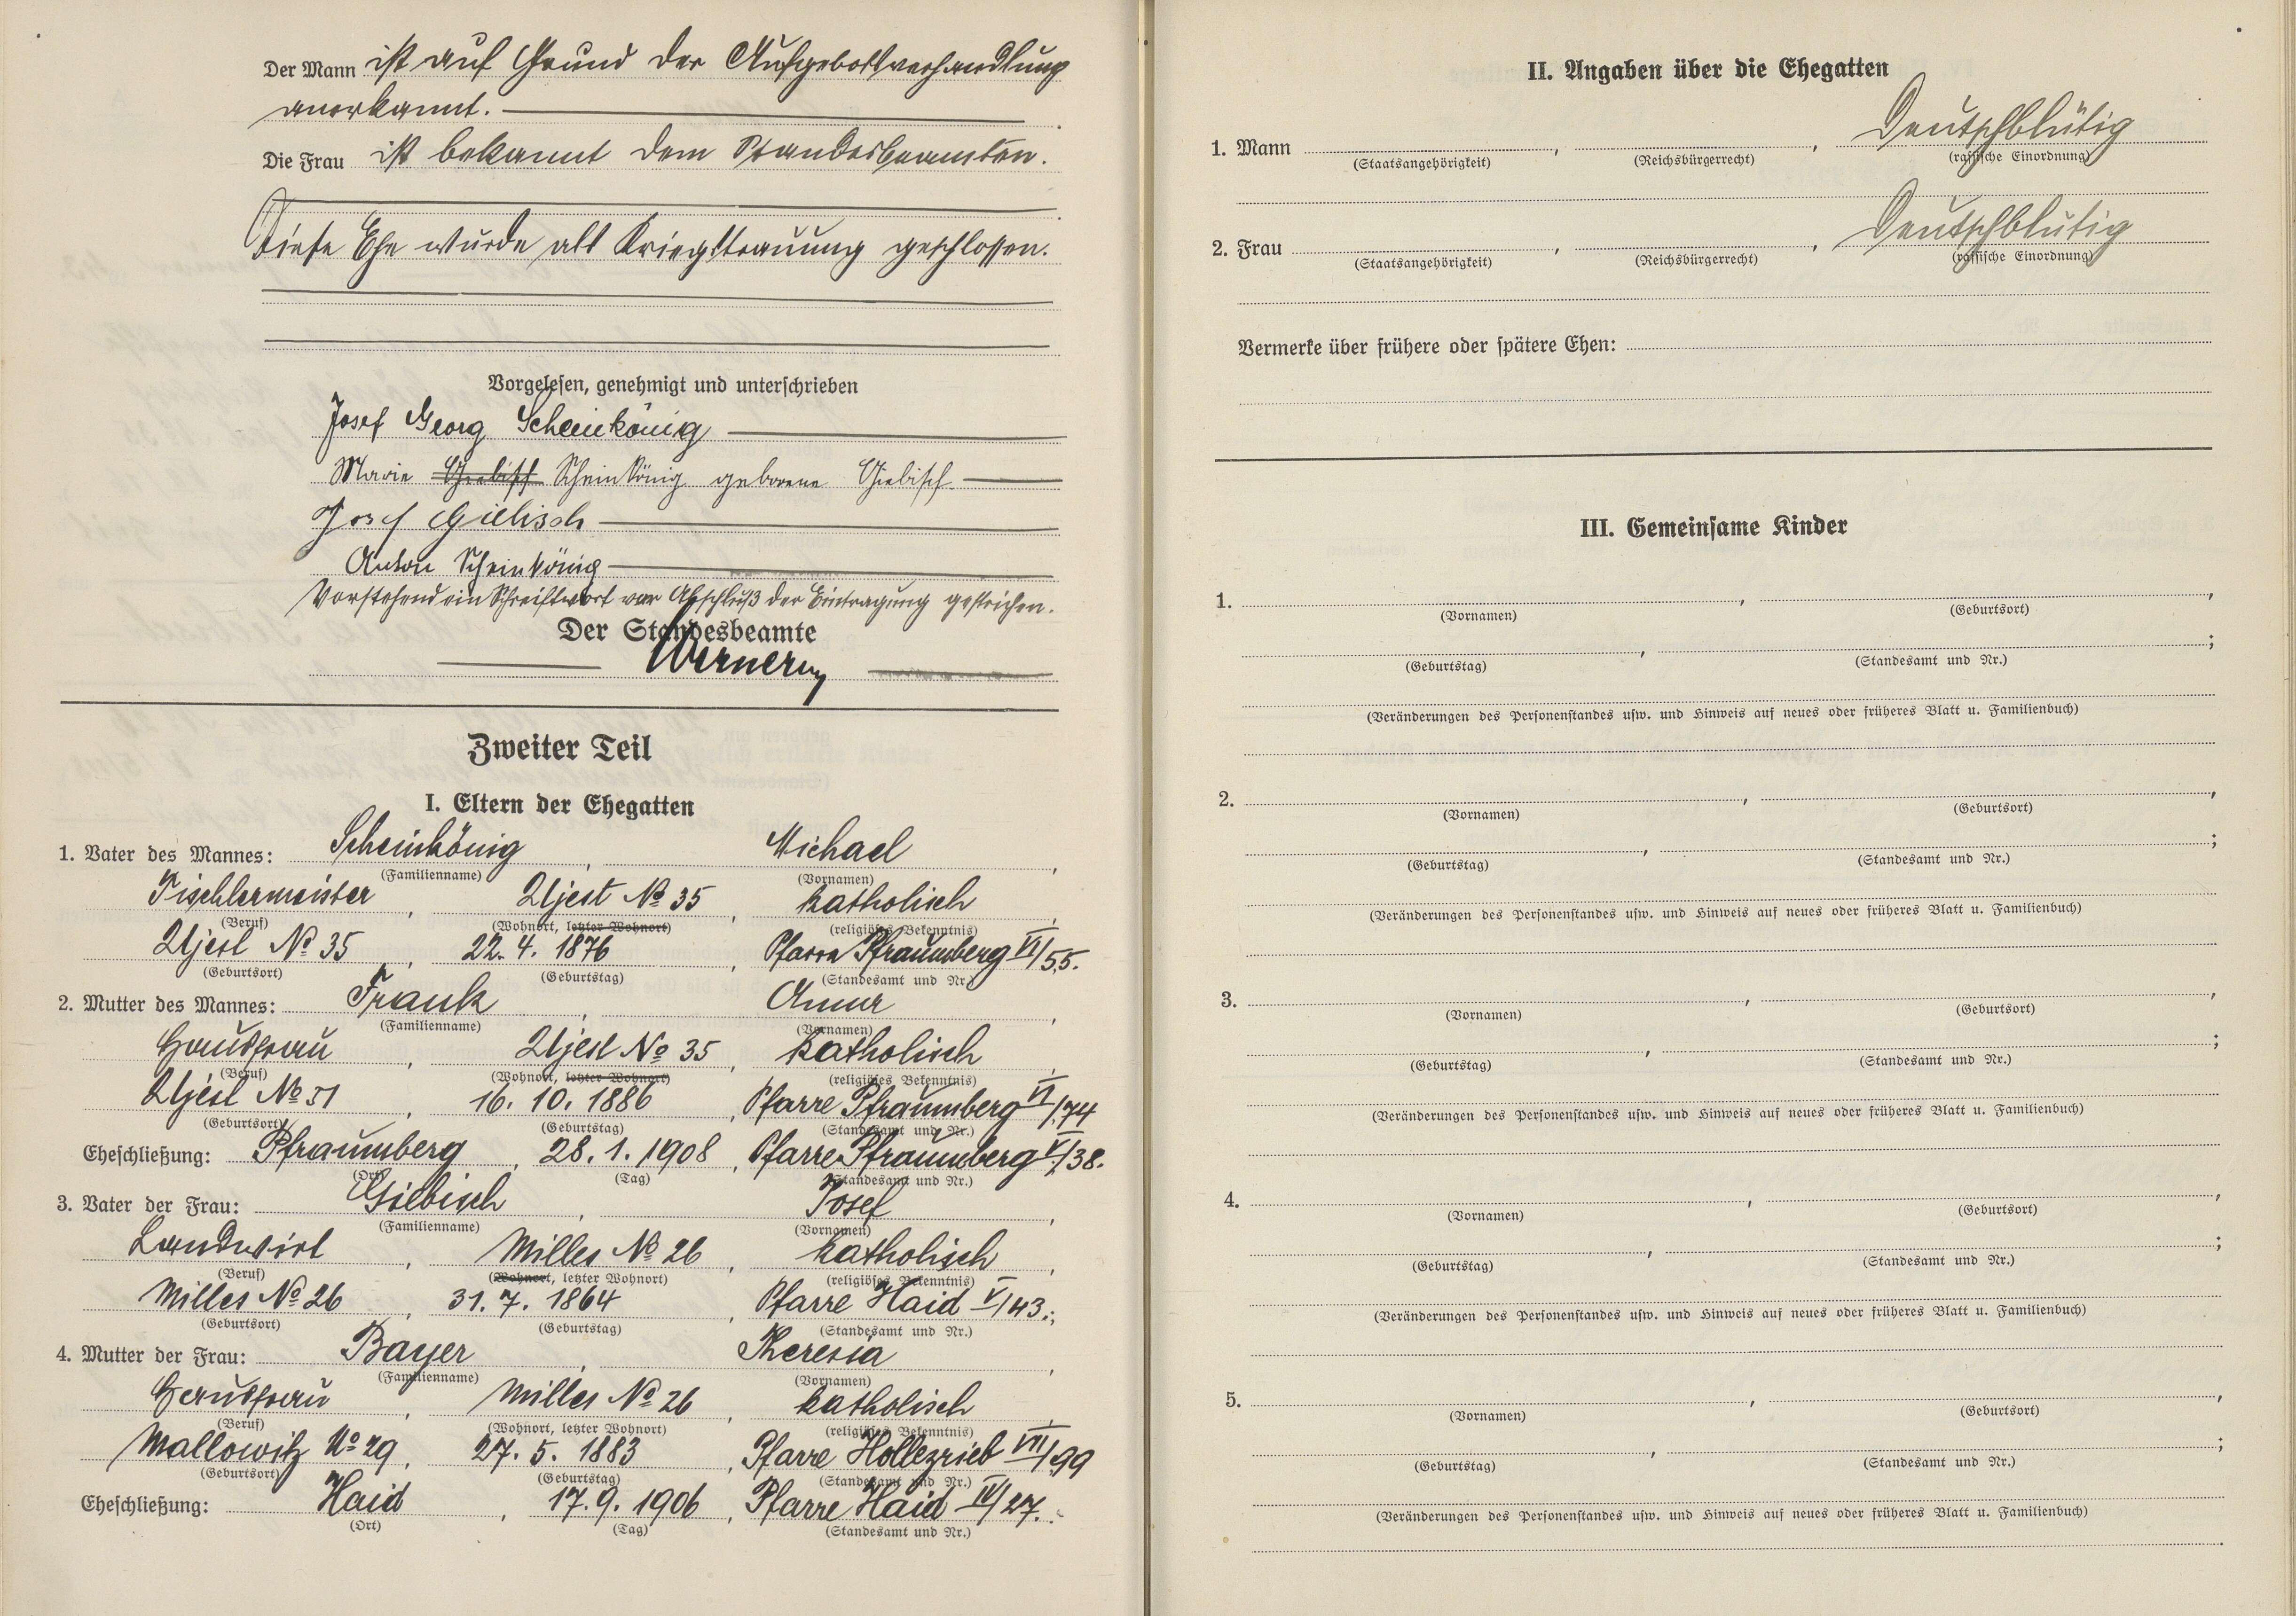 Der Mann ist auf Grund der Aufgebotsverhandlung
anerkannt.
Die Frau ist bekannt dem Standesbeamten.
Diese Ehe wurde als Kriegstrauung geschlossen.
Vorgelesen, genehmigt und unterschrieben
Josef Georg Scheinkönig
Marie Giebisch Scheinkönig geborene Giebisch
Josef Giebisch
Anton Scheinkönig
Vorstehend ein Schreiftwort vor Abschluß der Eintragung gestrichen.
Der Standesbeamte
Zweiter Teil
I. Eltern der Ehegatten
1. Vater des Mannes: Scheinkönig, Michael,
(Familienname) (Vornamen)
Tischlermeister, Ujest No 35, katholisch,
(Beruf) (Wohnort, letzter Wohnort) (religiöses Bekenntnis)
Ujest No 35, 22. 4. 1876, Pfarre Pfraumberg VI/55.
(Geburtsort) (Geburtstag) (Standesamt und Nr.)
2. Mutter des Mannes: Frank, Anna,
(Familienname) (Vornamen)
Hausfrau, Ujest No 35, katholisch,
(Beruf) (Wohnort, letzter Wohnort) (religiöses Bekenntnis)
Ujest No 51, 16. 10. 1886, Pfarre Pfraumberg VI/74
(Geburtsort) (Geburtstag) (Standesamt und Nr.)
Eheschließung: Pfraumberg, 28. 1. 1908, Pfarre Pfraumberg V/38.
(Ort) (Tag) (Standesamt und Nr.)
3. Vater der Frau: Giebisch, Josef,
(Familienname) (Vornamen)
Landwirt, Milles No 26, katholisch,
(Beruf) (Wohnort, letzter Wohnort) (religiöses Bekenntnis)
Milles No 26, 31. 7. 1864, Pfarre Haid V/43.;
(Geburtsort) (Geburtstag) (Standesamt und Nr.)
4. Mutter der Frau: Bayer, Theresia,
(Familienname) (Vornamen)
Hausfrau, Milles No 26, katholisch,
(Beruf) (Wohnort, letzter Wohnort) (religiöses Bekenntnis)
Mallowitz No 29, 27. 5. 1883, Pfarre Hollezrieb VII/99
(Geburtsort) (Geburtstag) (Standesamt und Nr.)
Eheschließung: Haid, 17. 9. 1906, Pfarre Haid IV/27.
(Ort) (Tag) (Standesamt und Nr.)
II. Angaben über die Ehegatten
1. Mann , , Deutschblütig
(Staatsangehörigkeit) (Reichsbürgerrecht) (rassische Einordnung)
2. Frau , , Deutschblütig
(Staatsangehörigkeit) (Reichsbürgerrecht) (rassische Einordnung)
Vermerke über frühere oder spätere Ehen:
III. Gemeinsame Kinder
1. , ,
(Vornamen) (Geburtsort)
, ;
(Geburtstag) (Standesamt und Nr.)
(Veränderungen des Personenstandes usw. und Hinweis auf neues oder früheres Blatt u. Familienbuch)
2. , ,
(Vornamen) (Geburtsort)
, ;
(Geburtstag) (Standesamt und Nr.)
(Veränderungen des Personenstandes usw. und Hinweis auf neues oder früheres Blatt u. Familienbuch)
3. , ,
(Vornamen) (Geburtsort)
, ;
(Geburtstag) (Standesamt und Nr.)
(Veränderungen des Personenstandes usw. und Hinweis auf neues oder früheres Blatt u. Familienbuch)
4. , ,
(Vornamen) (Geburtsort)
, ;
(Geburtstag) (Standesamt und Nr.)
(Veränderungen des Personenstandes usw. und Hinweis auf neues oder früheres Blatt u. Familienbuch)
5. , ,
(Vornamen) (Geburtsort)
, ;
(Geburtstag) (Standesamt und Nr.)
(Veränderungen des Personenstandes usw. und Hinweis auf neues oder früheres Blatt u. Familienbuch)